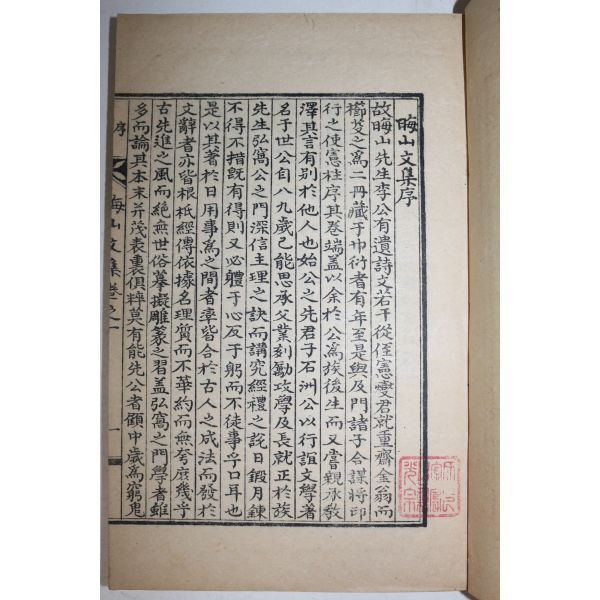 晦山文集序
故晦山先生李公有遺詩文若干從侄憲燮君就重齋金翁而
櫛芟之爲二冊藏于巾衍者有年至是與及門諸子合謀將印
行之使憲柱序其卷端盖以余於公爲族後生而又嘗親承敎
澤其言有別於他人也始公之先君子石洲公以行誼文學著
名于世公自八九歲已能思承父業刻勵攻學及長就正於族
先生弘窩公之門深信主理之訣而講究經禮之說日鍛月鍊
不得不措旣有得則又必體于心反于躬而不徒事乎口耳也
是以其著於日用事爲之間者率皆合於古人之成法而發於
文辭者亦皆根柢經傳依據名理質而不華約而無夸庶幾乎
古先進之風而絶無世俗摹擬雕篆之習盖弘窩之門學者雖
多而論其本末幷茂表裏俱粹莫有能先公者顧中歲爲窮鬼
序
晦山文集卷之一
一